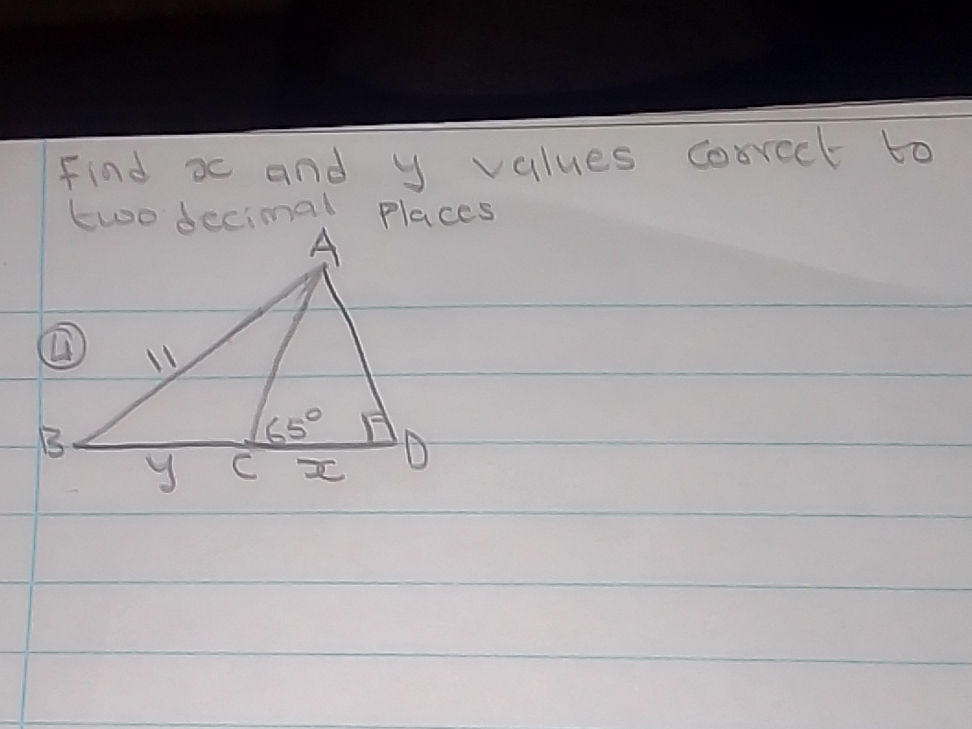 Find x and y values correct to
two decimal places
A
④
11
65°
B
y
C
x
D